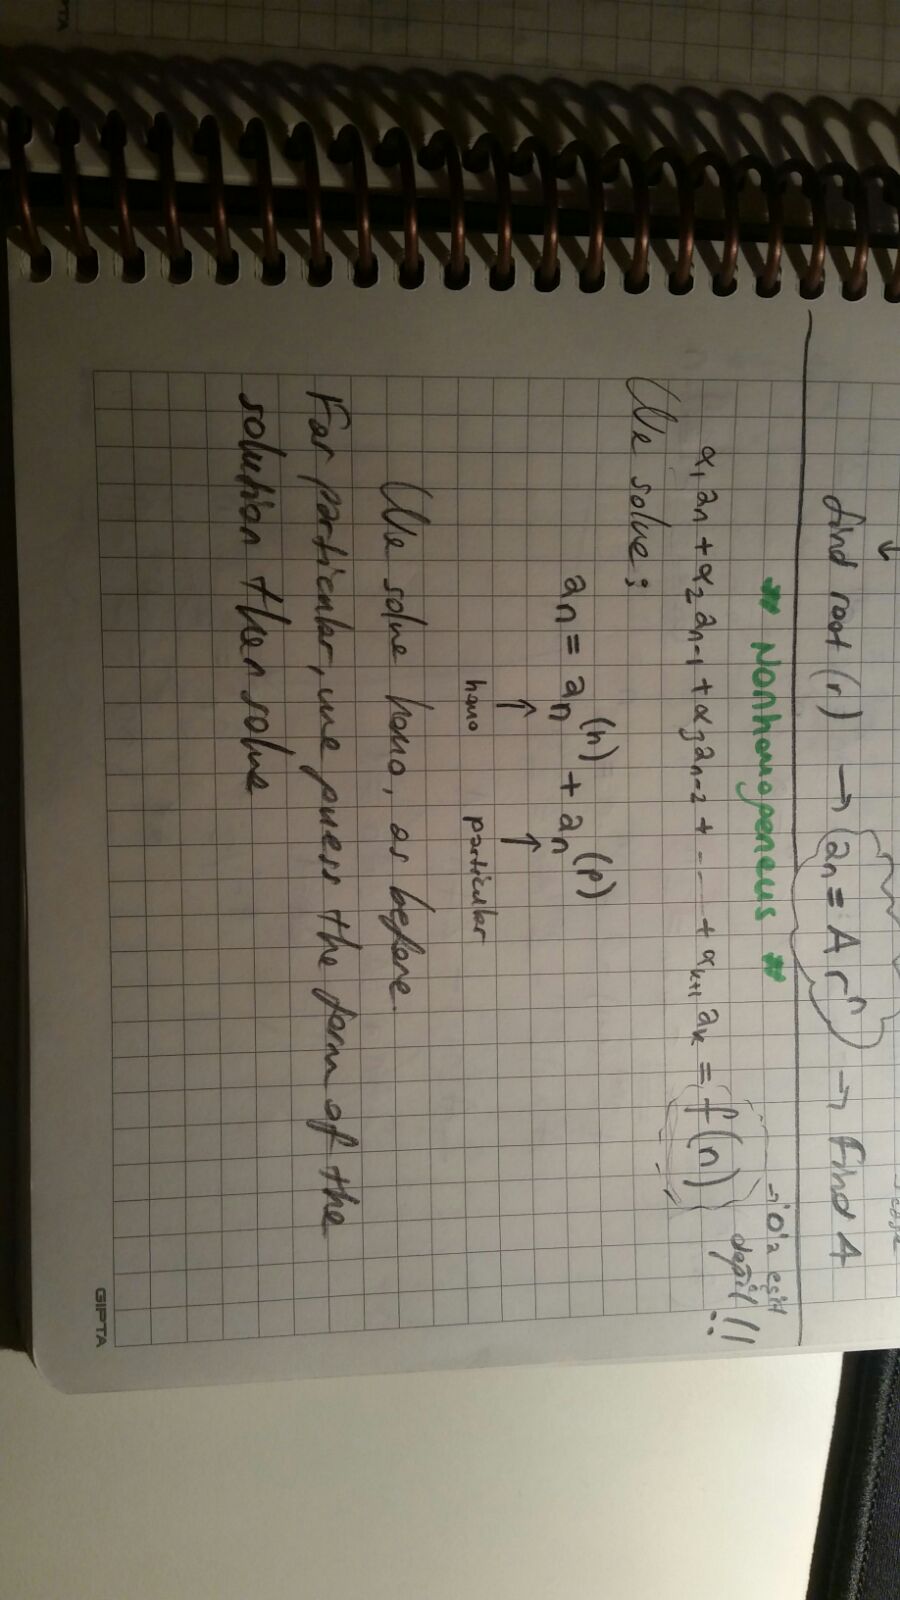 find root (r) → aₙ = A rⁿ → find A
* Nonhomogeneus *
→ '0'a eşit
değil !!
α₁ aₙ + α₂ aₙ₋₁ + α₃ aₙ₋₂ + ---- + αₖ₊₁ aₖ = f(n)
We solve;
aₙ = aₙ^(h) + aₙ^(p)
↑ ↑
homo particular
We solve homo, as before.
For particular, we guess the form of the
solution then solve
GIPTA